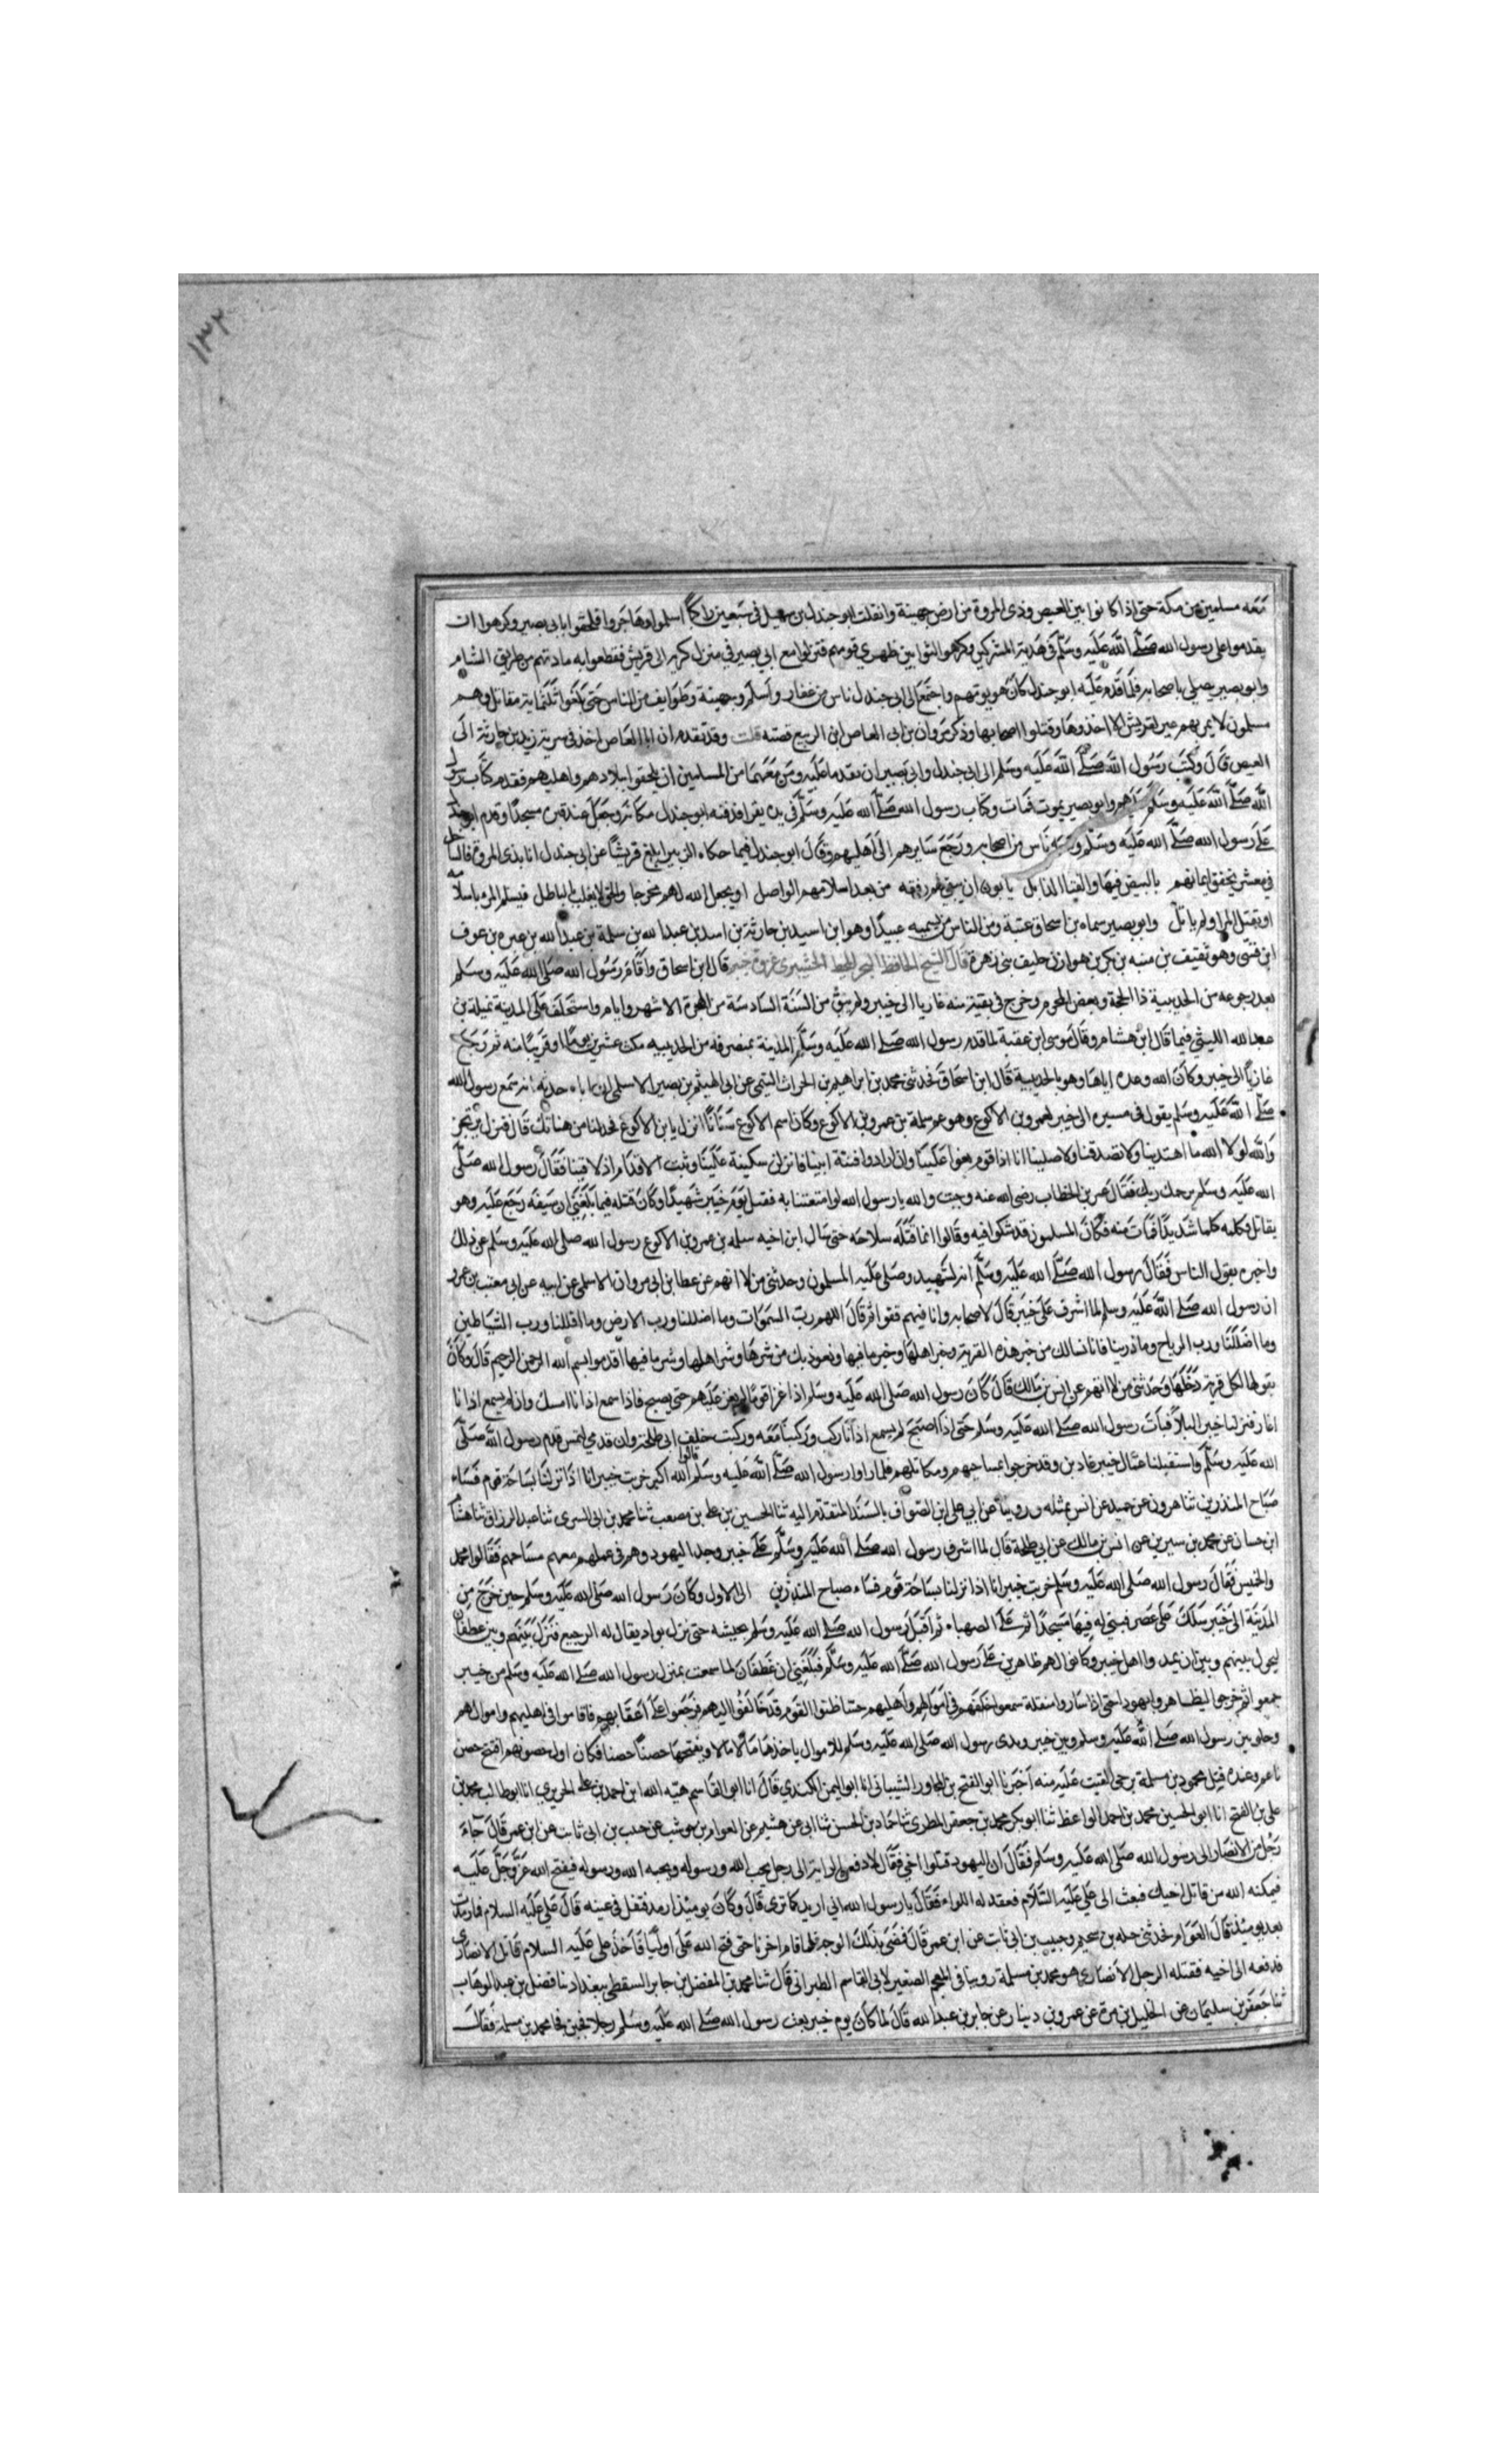 ١٣٢
معه مسلمين من مكة حتى اذا كانوا بين العيص وذى المروة من ارض جهينة وانفلت ابو جندل بن سهيل فى سبعين راكبا اسلموا وهاجروا فلحقوا بابى بصير وكرهوا ان
يقدموا على رسول الله صلى الله عليه وسلم فى هدنة المشركين وكرهوا الثوا بين ظهرى قومهم فنزلوا مع ابي بصير فى منزل كريه الى قريش فقطعوا به مادتهم من طريق الشام
وابو بصير يصلى باصحابه فلما قدم عليه ابو جندل كان هو يؤمهم واجتمع الى ابى جندل ناس من غفار واسلم وجهينة وطوايف من الناس حتى بلغوا ثلثماية مقاتل وهم
مسلمون لا يمر بهم عير لقريش الا اخذوها وقتلوا اصحابها وذكر مرور ابى العاص ابن الربيع قصته قلت وقد تقدم ان ابا العاص اخذ فى سرية زيد بن حارثة الى
العيص قال وكتب رسول الله صلى الله عليه وسلم الى ابى جندل وابى بصير ان يقدما عليه ومن معهما من المسلمين ان يلحقوا ببلادهم واهليهم فقدم كتاب رسول
الله صلى الله عليه وسلم وابو بصير يموت فمات وكتاب رسول الله صلى الله عليه وسلم فى يده يقرا فدفنه ابو جندل مكانه وجعل عند قبره مسجدا وقدم ابو جندل
على رسول الله صلى الله عليه وسلم ومعه ناس من اصحابه ورجع سايرهم الى اهليهم وقال ابو جندل فيما حكاه الزبير ابلغ قريشا عن ابى جندل انا بذى المروة فالساحل
فى معشر تخفق ايمانهم بالبيض فيها والقنا الذابل يابون ان يبقى لهم رفقه من بعد اسلامهم الواصل او يجعل الله لهم مخرجا والحق لا يغلب بالباطل فيسلم المرء باسلامه
او يقتل المرا ولم ياتل وابو بصير سماه بن اسحاق عتبة ومن الناس من يسميه عبيدا وهو ابن اسيد بن حارثة بن اسد بن عبد الله بن سلمة بن عبد الله بن غيره بن عوف
ابن قسى وهو ثقيف بن منبه بن بكر بن هوازن حليف بنى زهرة قال الشيخ الحافظ غزوة خيبر قال ابن اسحاق واقام رسول الله صلى الله عليه وسلم
بعد رجوعه من الحديبية ذا الحجة وبعض المحرم وخرج فى بقية منه غازيا الى خيبر ولم يبق من السنة السادسة من الهجرة الا شهر وايام واستخلف على المدينة نميلة بن
عبد الله الليثى فيما قال ابن هشام وقال موسى ابن عقبة لما قدم رسول الله صلى الله عليه وسلم المدينة بمنصرفه من الحديبيه مكث عشرين يوما او قريبا منه ثم رجع
غازيا الى خيبر وكان الله وعده اياها وهو بالحديبية قال ابن اسحاق فحدثنى محمد بن ابراهيم بن الحرث التيمى عن ابى الهيثم بن بصير الاسلمى ان اباه حدثه انه سمع رسول الله
صلى الله عليه وسلم يقول فى مسيره الى خيبر لعمرو بن الاكوع وهو عم سلمة بن عمرو بن الاكوع وكان اسم الاكوع سنانا انزل يا بن الاكوع فخذ لنا من هناتك قال فنزل يرتجز
والله لولا الله ما اهتدينا ولا تصدقنا ولا صلينا انا اذا قوم بغوا علينا وان ارادوا فتنة ابينا فانزلن سكينة علينا وثبت الاقدام اذ لاقينا فقال رسول الله صلى
الله عليه وسلم يرحمك ربك فقال عمر بن الخطاب رضى الله عنه وجبت والله يا رسول الله لو امتعتنا به فقتل يوم خيبر شهيدا وكان قتله فيما بلغنى ان سيفه رجع عليه وهو
يقاتل فكلمه كلما شديدا فمات منه فكان المسلمون قد شكوا فيه وقالوا انما قتله سلاحه حتى سال ابن اخيه سلمه بن عمرو بن الاكوع رسول الله صلى الله عليه وسلم عن ذلك
واخبره بقول الناس فقال رسول الله صلى الله عليه وسلم انه لشهيد وصلى عليه المسلمون وحدثنى من لا اتهم عن عطا بن ابى مروان الاسلمى عن ابيه عن ابى معتب بن عمرو
ان رسول الله صلى الله عليه وسلم لما اشرف على خيبر قال لاصحابه وانا فيهم قفوا ثم قال اللهم رب السموات وما اضللنا ورب الارض وما اقللنا ورب الشياطين
وما اضللنا ورب الرياح وما ذرينا فانا نسالك من خير هذه القرية وخير اهلها وخير ما فيها ونعوذ بك من شرها وشر اهلها وشر ما فيها اقدموا بسم الله الرحمن الرحيم قال وكان
يقولها لكل قرية دخلها وحدثنى من لا اتهم عن انس بن مالك قال كان رسول الله صلى الله عليه وسلم اذا غزا قوما لم يغز عليهم حتى يصبح فاذا سمع اذانا امسك وان لم يسمع اذانا
اغار فنزلنا خيبر ليلا فبات رسول الله صلى الله عليه وسلم حتى اذا اصبح لم يسمع اذانا ركب وركبنا معه وركبت خلف ابى طلحة وان قدمى لتمس قدم رسول الله صلى
الله عليه وسلم واستقبلنا عمال خيبر غادين وقد خرجوا بمساحيهم ومكاتلهم فلما راوا رسول الله صلى الله عليه وسلم قالوا الله اكبر خربت خيبر انا اذا نزلنا بساحة قوم فساء
صباح المنذرين ثنا هرون عن حميد عن انس بمثله وروينا عن ابي على ابن الصواف بالسند المتقدم اليه ثنا الحسين بن على بن مصعب ثنا محمد بن ابى السرى ثنا عبد الرزاق ثنا هشام
ابن حسان عن محمد بن سيرين عن انس بن مالك عن ابى طلحة قال لما اشرف رسول الله صلى الله عليه وسلم على خيبر وجد اليهود وهم فى عملهم معهم مساحيهم فقالوا محمد
والخميس فقال رسول الله صلى الله عليه وسلم خربت خيبر انا اذا نزلنا بساحة قوم فساء صباح المنذرين الى الاول وكان رسول الله صلى الله عليه وسلم حين خرج من
المدينة الى خيبر سلك على عصر فبنى له فيها مسجدا ثم على الصهباء ثم اقبل رسول الله صلى الله عليه وسلم بجيشه حتى نزل بواد يقال له الرجيع فنزل بينهم وبين غطفان
ليحول بينهم وبين ان يمدوا اهل خيبر وكانوا لهم ظاهرين على رسول الله صلى الله عليه وسلم فبلغنى ان غطفان لما سمعت بمنزل رسول الله صلى الله عليه وسلم من خيبر
جمعوا ثم خرجوا ليظاهروا يهود حتى اذا ساروا منقلة سمعوا خلفهم فى اموالهم واهليهم حسا ظنوا القوم قد خالفوا اليهم فرجعوا على اعقابهم فاقاموا فى اهليهم واموالهم
وخلوا بين رسول الله صلى الله عليه وسلم وبين خيبر وبدى رسول الله صلى الله عليه وسلم للاموال ياخذها مالا مالا ويفتحها حصنا حصنا فكان اول حصونهم افتتح حصن
ناعم وعنده قتل محمود بن مسلمة برحى القيت عليه منه اخبرنا ابو الفتح بن المجاور الشيبانى انا ابو اليمن الكندي قال انا ابو القاسم هبة الله ابن احمد بن على الحريرى انا ابو طالب محمد بن
على بن الفتح انا ابو الحسين محمد بن احمد الواعظ ثنا ابو بكر محمد بن جعفر المطرى ثنا حماد بن الحسن ثنا ابى عن هشيم عن العوام بن حوشب عن حبيب بن ابى ثابت عن ابن عمر قال جاء
رجل من الانصار الى رسول الله صلى الله عليه وسلم فقال ان اليهود قتلوا اخى فقال لادفعن الراية الى رجل يحب الله ورسوله ويحبه الله ورسوله فيفتح الله عز وجل عليه
فيمكنه الله من قاتل اخيك فبعث الى على عليه السلام فعقد له اللواء فقال يا رسول الله انى ارمد كما ترى قال وكان يومئذ ارمد فتفل فى عينه قال على عليه السلام فما رمدت
بعد يومئذ قال العوام فحدثنى جبله بن سحيم وحبيب بن ابى ثابت عن ابن عمر قال فمضى بذلك الوجه فما قام اخرنا حتى فتح الله على اولنا فاخذ على عليه السلام قاتل الانصارى
فدفعه الى اخيه فقتله الرجل الانصارى هو محمد بن مسلمة روينا فى المعجم الصغير لابى القاسم الطبرانى قال ثنا محمد بن المفضل بن جابر السقطى ببغداد ثنا فضل بن عبد الوهاب
ثنا جعفر بن سليمان عن الخليل بن مرة عن عمرو بن دينار عن جابر بن عبد الله قال لما كان يوم خيبر بعث رسول الله صلى الله عليه وسلم رجلا فجبن فجا محمد بن مسلمة فقال